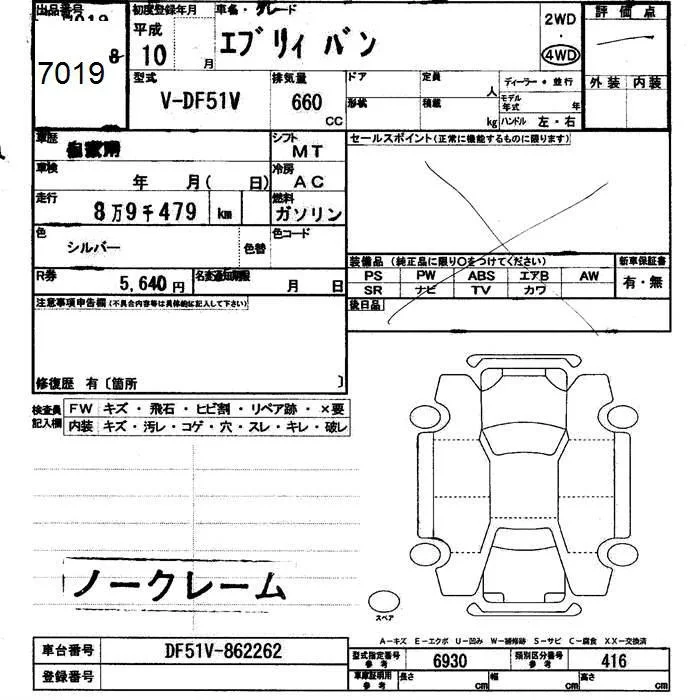 出品番号
7019
8
7019
初度登録年月
平成
10 月
車名・グレード
エブリィ バン
2WD
・
4WD
評価点
外装 内装
型式
V-DF51V
排気量
660
CC
ドア
形状
定員
人
積載
kg
ディーラー・並行
モデル年式 年
ハンドル 左・右
車歴
自家用
シフト
MT
車検
年 月( 日)
冷房
AC
走行
8万9千479 km
燃料
ガソリン
色
シルバー
色替
色コード
R券
5,640円
名変通知期限
月 日
セールスポイント(正常に機能するものに限ります)
装備品 (純正品に限り○をつけてください)
PS PW ABS エアB AW
SR ナビ TV カワ
新車保証書
有・無
後日品
注意事項申告欄(不具合内容等は具体的に記入して下さい)
修復歴 有〔箇所 〕
検査員記入欄
FW キズ・飛石・ヒビ割・リペア跡・×要
内装 キズ・汚レ・コゲ・穴・スレ・キレ・破レ
ノークレーム
スペア
A−キズ E−エクボ U−凹み W−補修跡 S−サビ C−腐食 XX−交換済
車台番号
DF51V-862262
登録番号
型式指定番号
参考
6930
類別区分番号
参考
416
車庫証明用
参考
長さ cm
幅 cm
高さ cm